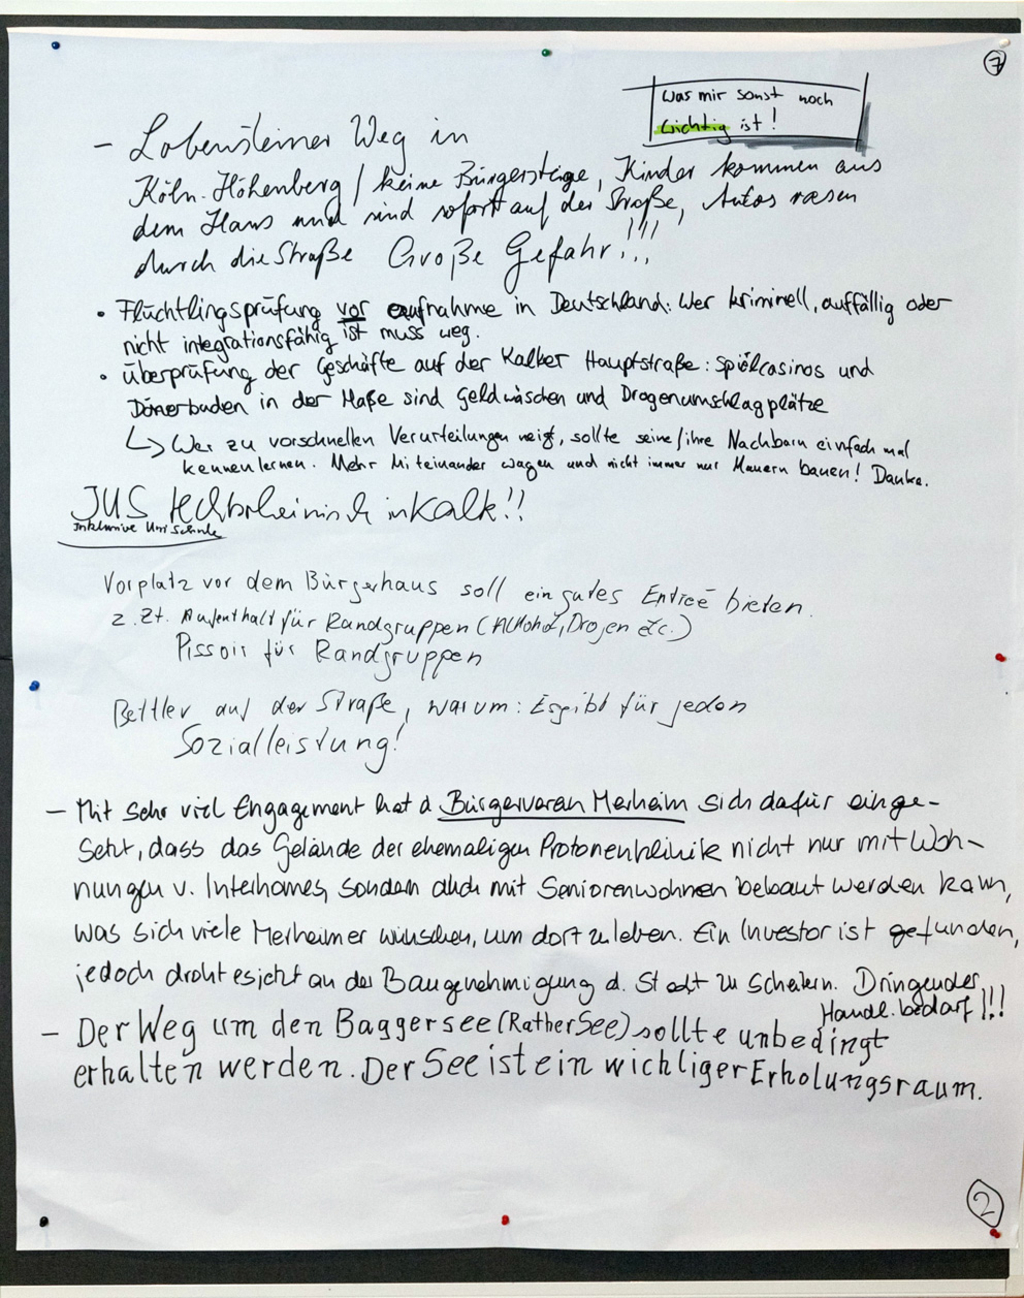 7
Was mir sonst noch
wichtig ist!
– Lobensteiner Weg in
Köln-Höhenberg / keine Bürgersteige, Kinder kommen aus
dem Haus und sind sofort auf der Straße, Autos rasen
durch die Straße Große Gefahr!!!
• Flüchtlingsprüfung vor aufnahme in Deutschland: Wer kriminell, auffällig oder
nicht integrationsfähig ist muss weg.
• Überprüfung der Geschäfte auf der Kalker Hauptstraße: Spielcasinos und
Dönerbuden in der Maße sind Geldwäschen und Drogenumschlagplätze
↳ Wer zu vorschnellen Verurteilungen neigt, sollte seine/ihre Nachbarn einfach mal
kennenlernen. Mehr Miteinander wagen und nicht immer nur Mauern bauen! Danke.
JUS rechtsrheinisch in Kalk!!
Inklusive Uni Schule
Vorplatz vor dem Bürgerhaus soll ein gutes Entreé bieten.
z. Zt. Aufenthalt für Randgruppen (Alkohol, Drogen etc.)
Pissoir für Randgruppen
Bettler auf der Straße, warum: Es gibt für jeden
Sozialleistung!
– Mit sehr viel Engagement hat d Bürgerverein Merheim sich dafür einge-
setzt, dass das Gelände der ehemaligen Protonenklinik nicht nur mit Woh-
nungen v. Interhomes, sondern auch mit Seniorenwohnen bebaut werden kann,
was sich viele Merheimer wünschen, um dort zu leben. Ein Investor ist gefunden,
jedoch droht es jetzt an der Baugenehmigung d. Stadt zu scheitern. Dringender
Handl.bedarf!!!
– Der Weg um den Baggersee (Rather See) sollte unbedingt
erhalten werden. Der See ist ein wichtiger Erholungsraum.
2